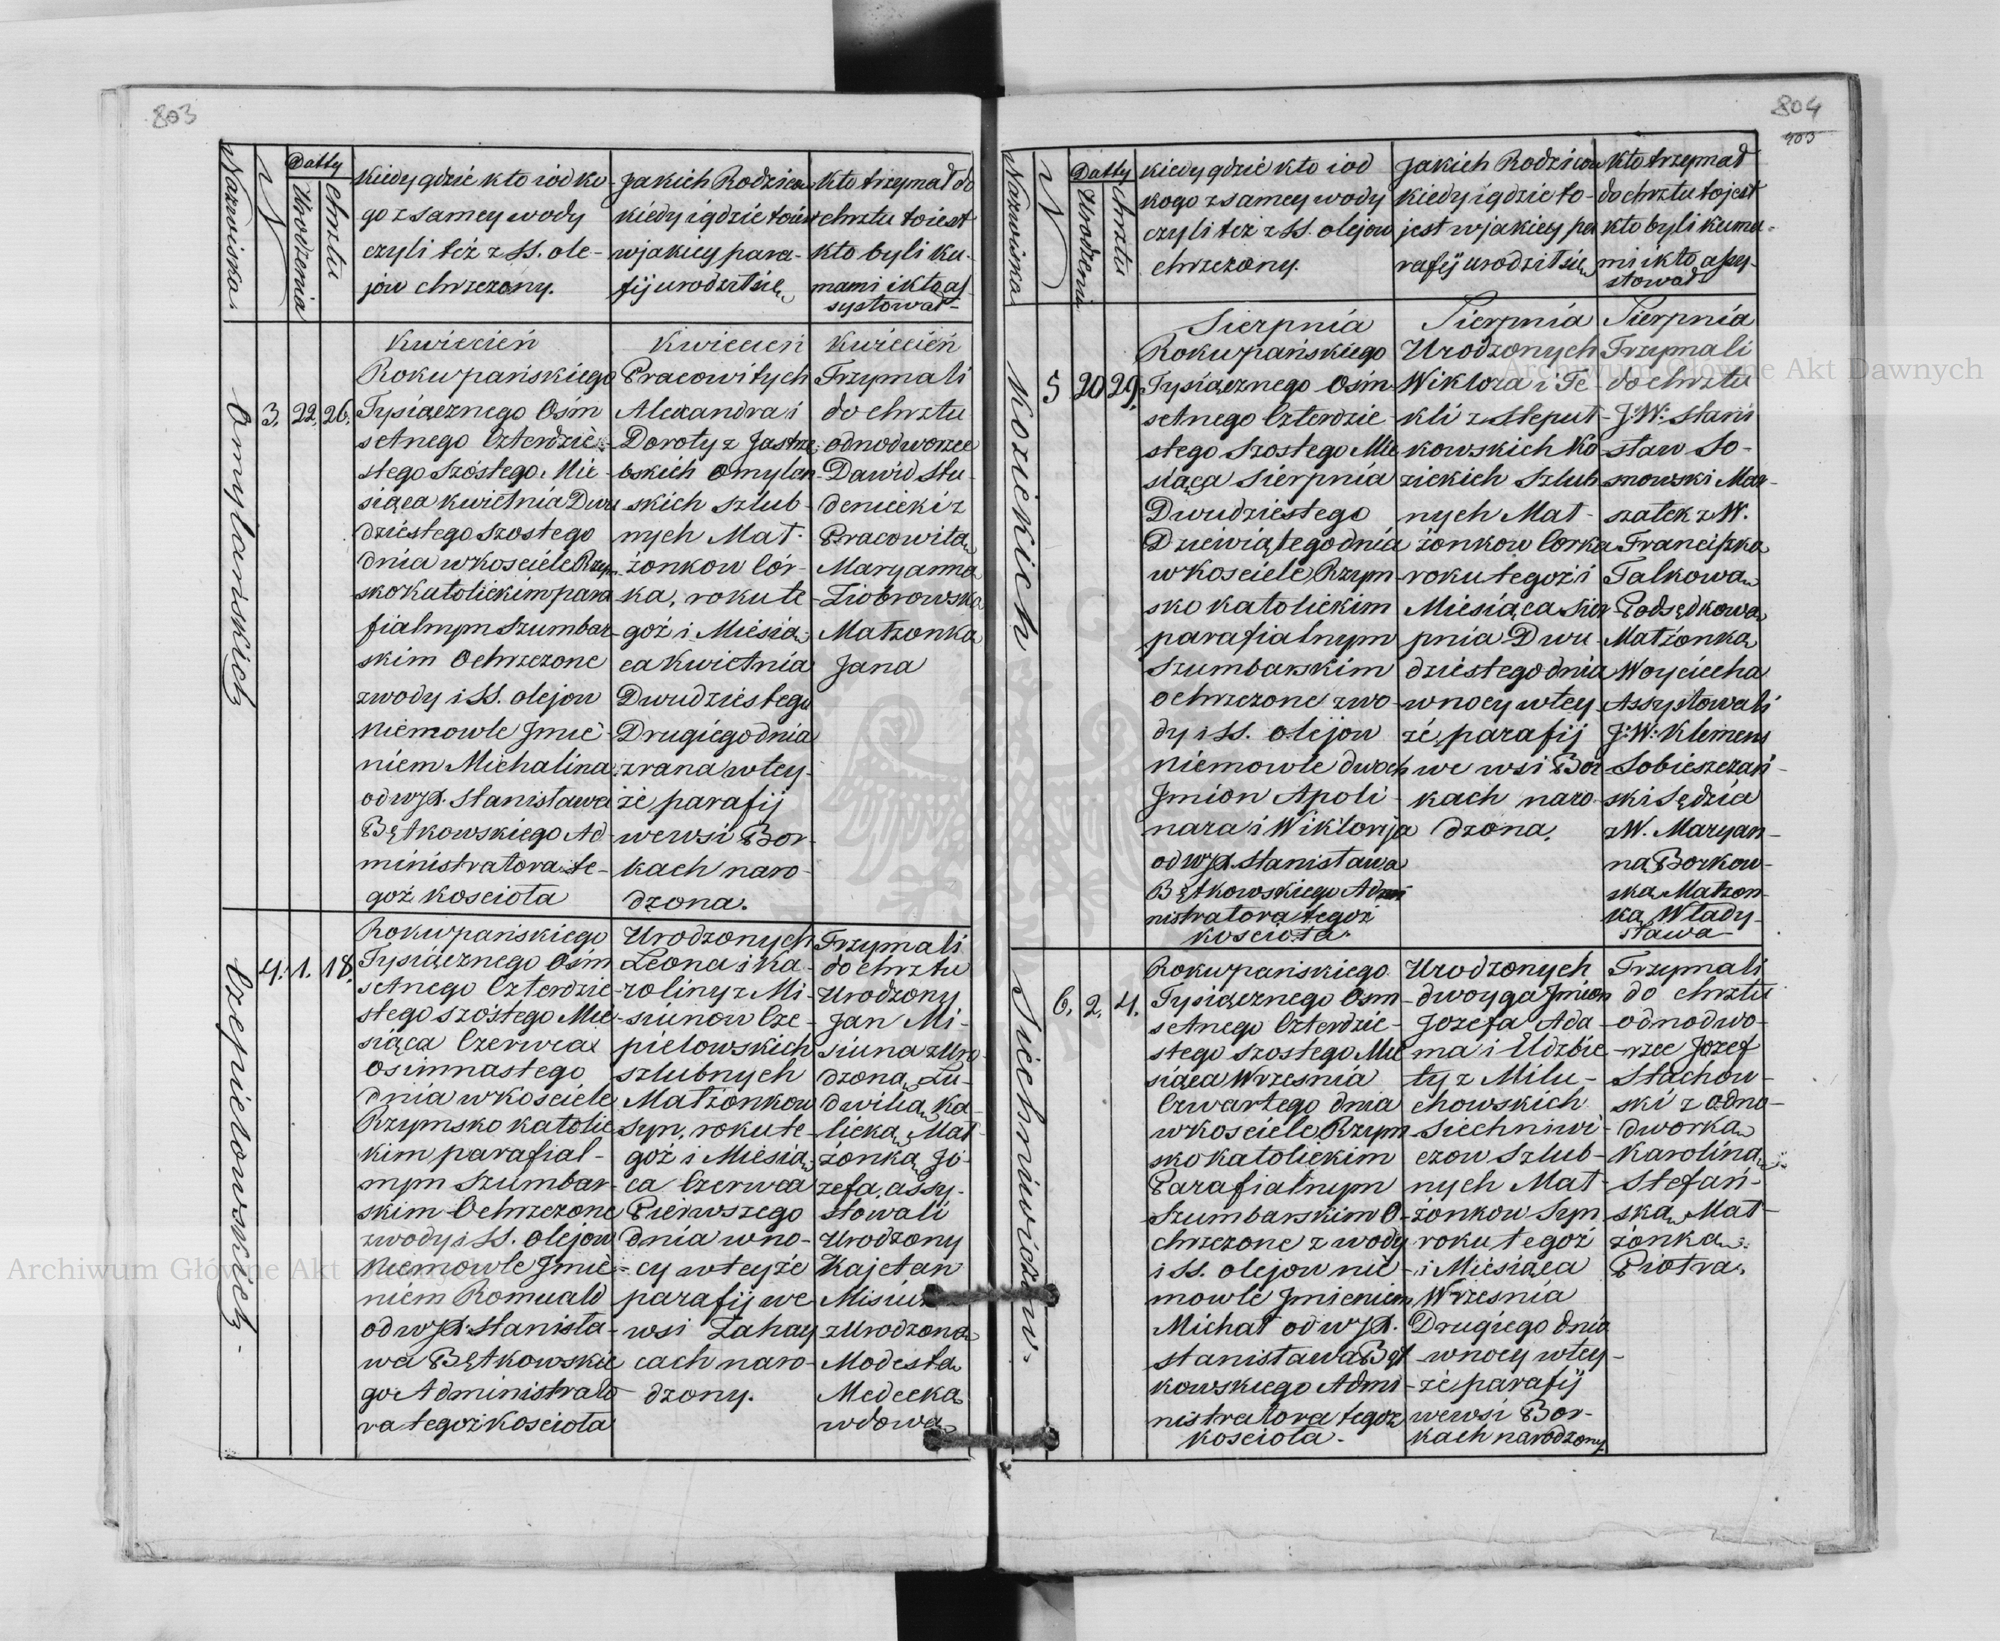 803
Nazwiska.
N
Datty
Urodzenia
Chrztu
Kiedy gdzie kto i od ko-
go z samey wody
czyli też z SS. ole-
jow chrzczony.
Jakich Rodzicow
kiedy i gdzie to iest
w jakiey para-
fij urodził się
Kto trzymał do
chrztu to iest
kto byli ku-
mami i kto as-
systował
Omylańskich
3.
22.
26.
Kwiecień
Roku pańskiego
Tysiącznego Osm
setnego Czterdzie-
stego Szóstego Mie-
siąca kwietnia Dwu
dziestego szostego
dnia w kosciele Rzym
sko katolickim para
fialnym Szumbar-
skim Ochrzczone
z wody i SS. olejow
Niemowle Jmie-
niem Michalina
od WJX. Stanisława
Bętkowskiego Ad-
ministratora te-
goż koscioła
Kwiecień
Pracowitych
Alexandra i
Doroty z Jastrzę
bskich Omylan-
skich szlub-
nych Mał-
żonkow Cór-
ka, roku te-
goż i Miesią-
ca kwietnia
Dwudziestego
Drugiego dnia
z rana w tey-
że parafij
we wsi Bor-
kach naro-
dzona.
Kwiecień
Trzymali
do chrztu
odnodworzec
Dawid Stu-
denicki z
Pracowitą
Maryanną
Ziobrowską
Małżonką
Jana
Czepielowskich
4.
1.
18.
Roku pańskiego
Tysiącznego Osm
setnego Czterdzie-
stego szóstego Mie-
siąca Czerwca
Osimnastego
dnia w kosciele
Rzymsko katolic
kim parafial-
nym Szumbar-
skim Ochrzczone
z wody i SS. olejow
Niemowle Jmie-
niem Romuald
od WJX. Stanisła-
wa Bętkowskie
go Administrato
ra tegoż kosciola
Urodzonych
Leona i Ka-
roliny z Mi-
siunow Cze-
pielowskich
szlubnych
Małżonkow
Syn, roku te-
goż i Miesią
ca Czerwca
Pierwszego
dnia w no-
cy w teyże
parafij we
wsi Zahay
cach naro-
dzony.
Trzymali
do chrztu
Urodzony
Jan Mi-
siuna z Uro-
dzoną Lu-
dwiką Ka-
licką Mał-
żonką Jó-
zefa, assy-
stowali
Urodzony
Kajetan
z Urodzoną
Modestą
Medecką
wdową
804
Nazwiska
N
Datty
Urodzenia
Chrztu
Kiedy gdzie kto i od
kogo z samey wody
czyli też z SS. olejow
chrzczony.
Jakich Rodzicow
kiedy i gdzie to-
jest w jakiey pa
rafij urodził się
Kto trzymał
do chrztu to jest
kto byli kuma-
mi i kto assy-
stował
Kozickich
5
20
29.
Sierpnia
Roku pańskiego
Tysiącznego Osm
setnego Czterdzie
stego szostego Mie
siąca Sierpnia
Dwudziestego
Dziewiątego dnia
w kosciele Rzym
sko katolickim
parafialnym
Szumbarskim
ochrzczone z wo-
dy i SS. olejow
niemowle dwoch
Jmion Apoli-
nara i Wiktorija
od WJX. Stanisława
Bętkowskiego Admi
nistratora tegoż
kosciola.
Sierpnia
Urodzonych
Wiktora i Te-
kli z Słeput-
kowskich Ko
zickich Szlub
nych Mał-
żonkow Corka
roku tegoż i
Miesiąca Sier
pnia Dwu-
dziestego dnia
w nocy w tey-
że parafij
we wsi Bor-
kach naro-
dzona.
Sierpnia
Trzymali
do chrztu
J:W: Stani
sław So-
snowski Mar-
szałek z W.
Franciszką
Talkową
Podsędkową
Małżonką
Woyciecha
Assystowali
J:W: Klemens
Sobieszczań-
ski Sędzia
z W. Maryan-
ną Borkow-
ską Małżon-
ką Włady-
sława
Siechniewiczow.
6.
2.
4.
Roku pańskiego
Tysiącznego Osm
setnego Czterdzie-
stego szostego Mie
siąca Wrzesnia
Czwartego dnia
w kosciele Rzym
sko katolickim
Parafialnym
Szumbarskim O-
chrzczone z wody
i SS. olejow nie-
mowle Jmieniem
Michał od WJX.
Stanisława Bęt-
kowskiego Admi-
nistratora tegoż
kosciola.
Urodzonych
dwoyga Jmion
Jozefa Ada-
ma i Elzbie-
ty z Milu-
chowskich
Siechniwi-
czow Szlub-
nych Mał-
żonkow Syn
roku tegoż
i Miesiąca
Wrzesnia
Drugiego dnia
w nocy w tey-
że parafij
we wsi Bor-
kach narodzony.
Trzymali
do chrztu
odnodwo-
rzec Józef
Stachow-
ski z odno-
dworką
Karoliną
Stefań-
ską Mał-
żonką
Piotra.
Archiwum Główne Akt Dawnych
Archiwum Główne Akt